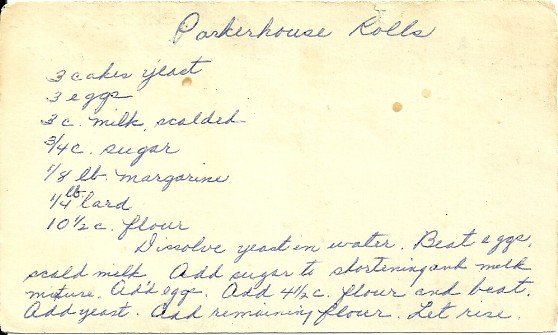 Parkerhouse Rolls
3 cakes yeast
3 eggs
3 c. milk, scalded
3/4 c. sugar
1/8 lb. margarine
1/4 lb. lard
10 1/2 c. flour
Dissolve yeast in water. Beat eggs,
scald milk. Add sugar to shortening and milk
mixture. Add egg. Add 4 1/2 c. flour and beat.
Add yeast. Add remaining flour. Let rise.